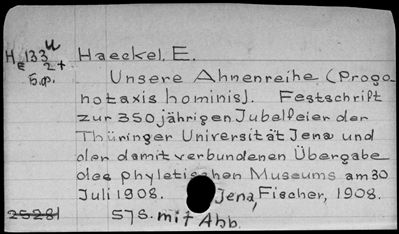 H 133 u
e 2+
Б.ф.
Haeckel, E.
Unsere Ahnenreihe (Progo-
notaxis hominis). Festschrift
zur 350jährigen Jubelfeier der
Thüringer Universität Jena und
der damit verbundenen Übergabe
des phyletischen Museums am 30
Juli 1908. Jena, Fischer, 1908.
25281 57S. mit Abb.